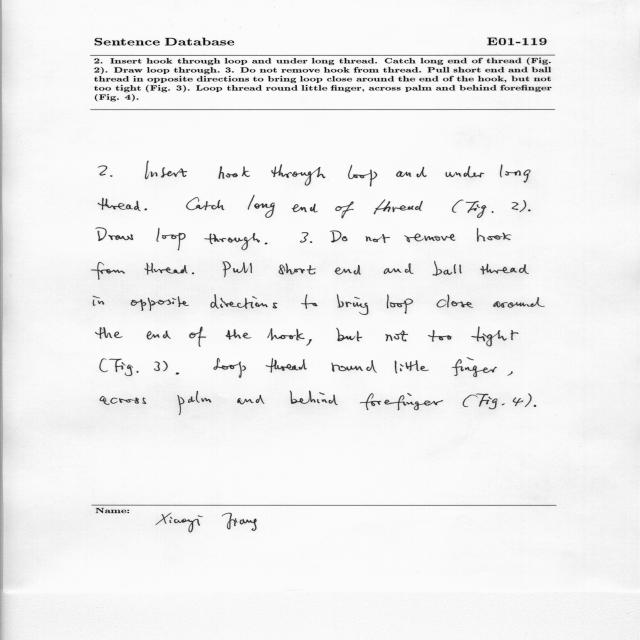 Sentence Database E01-119
2. Insert hook through loop and under long thread. Catch long end of thread (Fig.
2). Draw loop through. 3. Do not remove hook from thread. Pull short end and ball
thread in opposite directions to bring loop close around the end of the hook, but not
too tight (Fig. 3). Loop thread round little finger, across palm and behind forefinger
(Fig. 4).
2. Insert hook through loop and under long
thread. Catch long end of thread (Fig. 2).
Draw loop through. 3. Do not remove hook
from thread. Pull short end and ball thread
in opposite directions to bring loop close around
the end of the hook, but not too tight
(Fig. 3). Loop thread round little finger,
across palm and behind forefinger (Fig. 4).
Name: